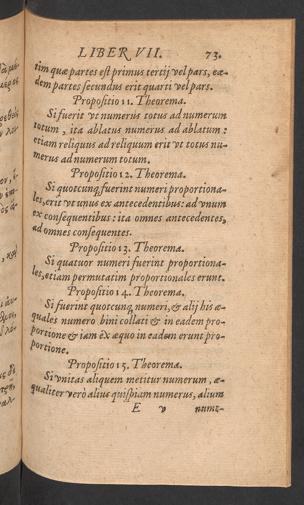 LIBER VII. 73.
tim quæ partes est primus tertij vel pars, eæ-
dem partes secundus erit quarti vel pars.
Propositio 11. Theorema.
Si fuerit vt numerus totus ad numerum
totum, ita ablatus numerus ad ablatum:
etiam reliquus ad reliquum erit vt totus nu-
merus ad numerum totum.
Propositio 12. Theorema.
Si quotcunq; fuerint numeri proportiona-
les, erit vt unus ex antecedentibus: ad vnum
ex consequentibus: ita omnes antecedentes,
ad omnes consequentes.
Propositio 13. Theorema.
Si quatuor numeri fuerint proportiona-
les, etiam permutatim proportionales erunt.
Propositio 14. Theorema.
Si fuerint quotcunq; numeri, & alij his æ-
quales numero bini collati & in eadem pro-
portione & iam ex æquo in eadem erunt pro-
portione.
Propositio 15. Theorema.
Si vnitas aliquem metitur numerum, æ-
qualiter verò alius quispiam numerus, alium
E v nume-